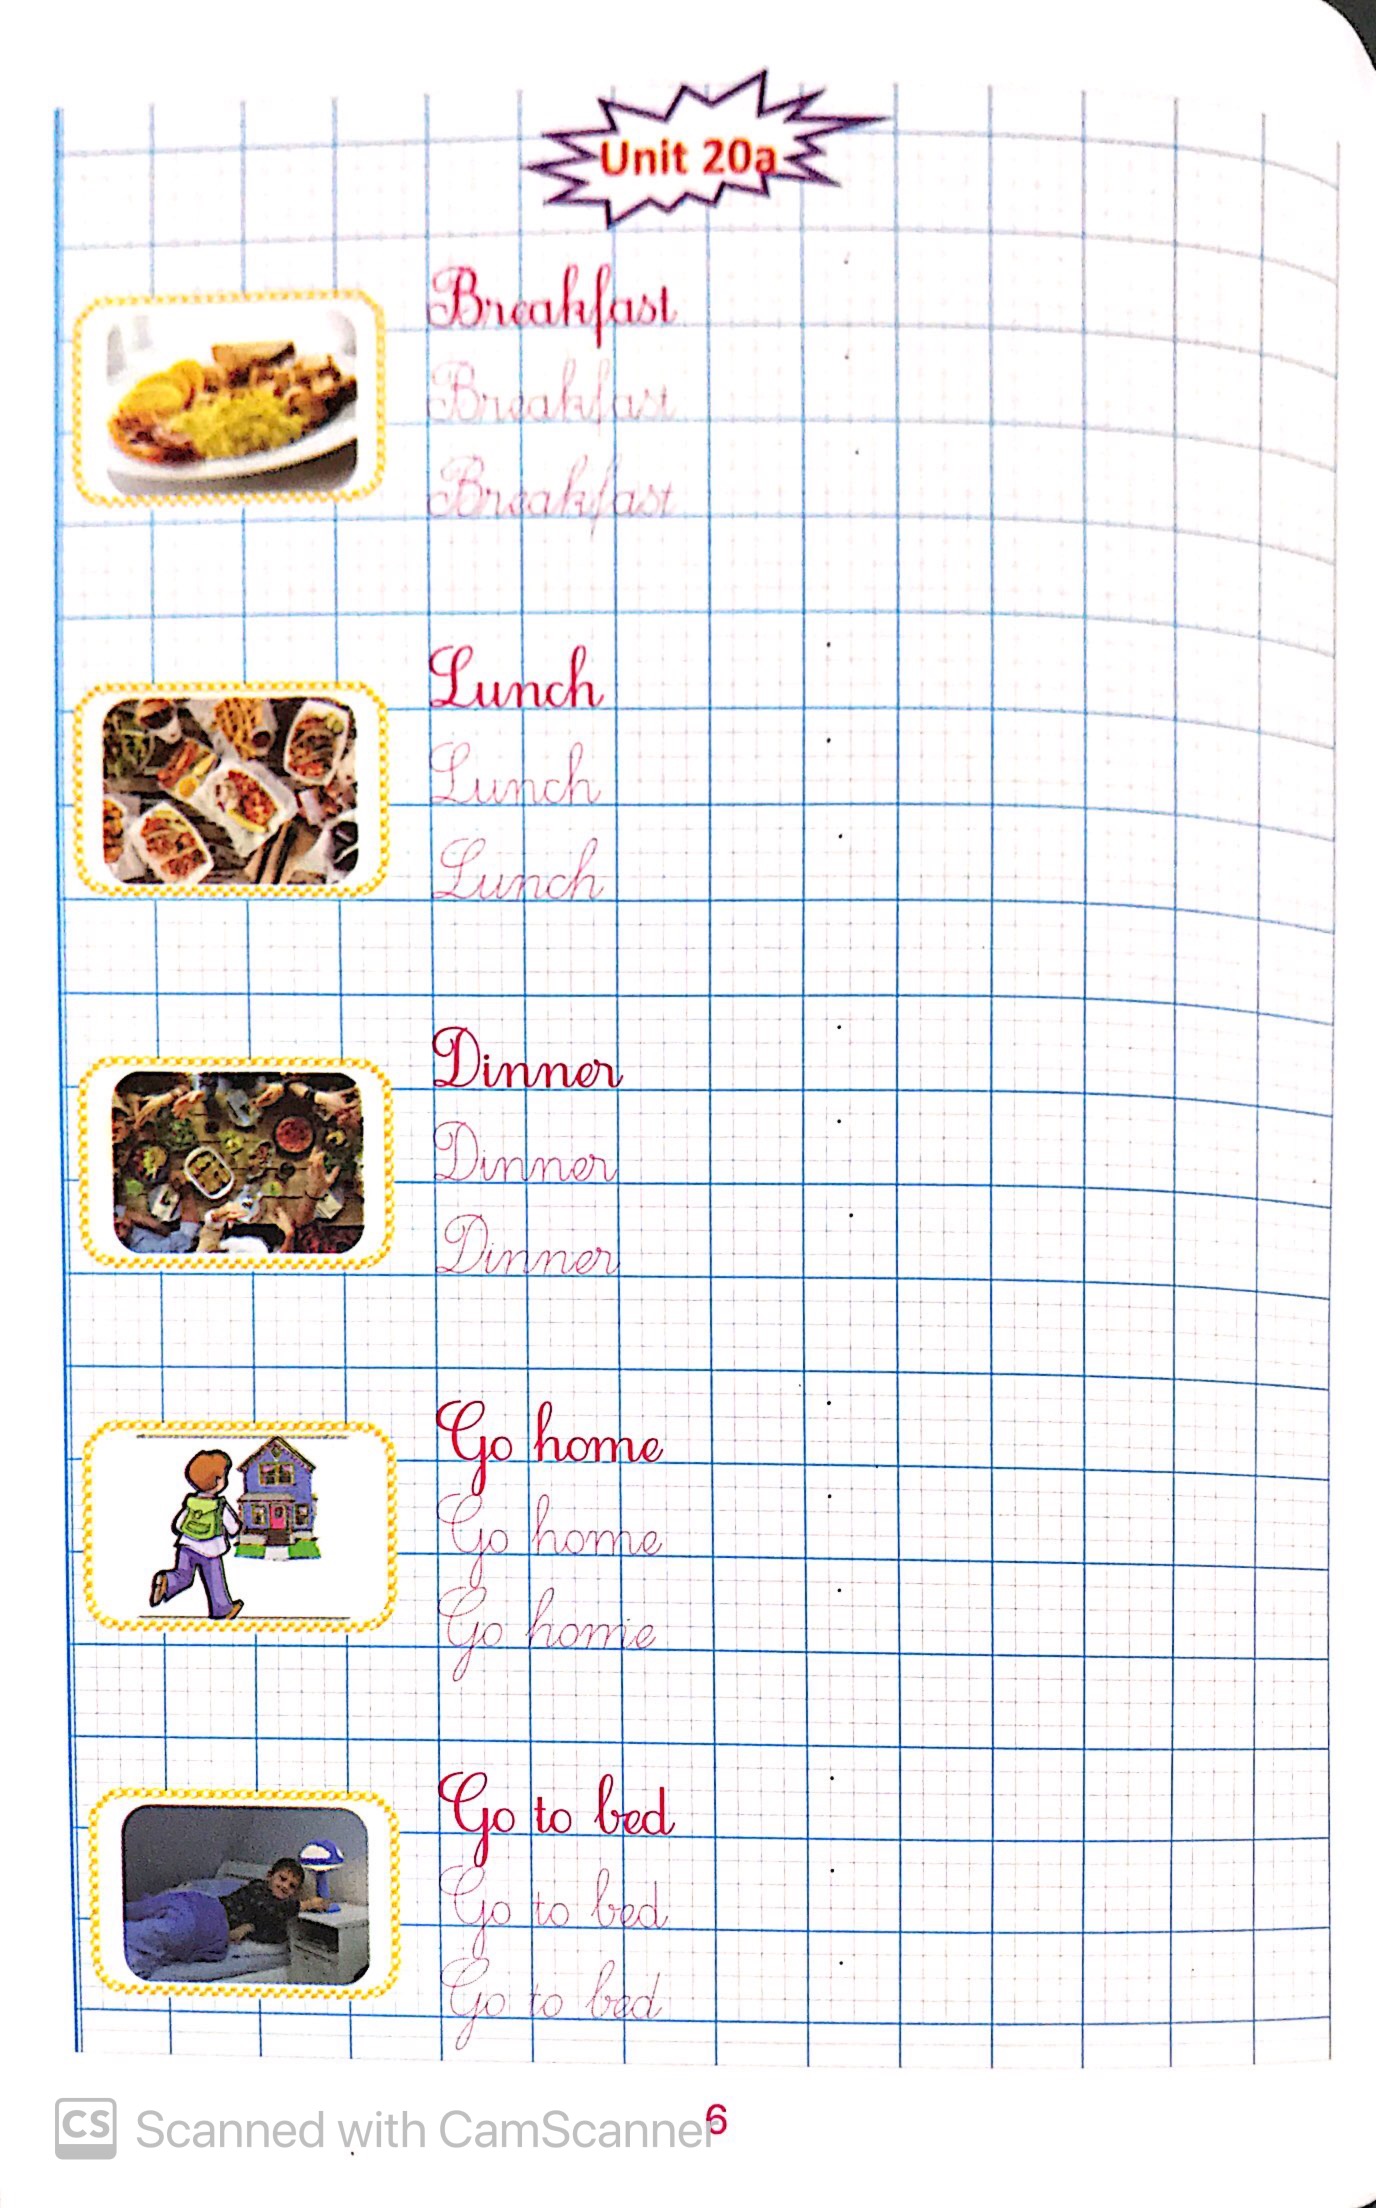 Unit 20a
Breakfast
Breakfast
Breakfast
Lunch
Lunch
Lunch
Dinner
Dinner
Dinner
Go home
Go home
Go home
Go to bed
Go to bed
Go to bed
6
CS Scanned with CamScanner